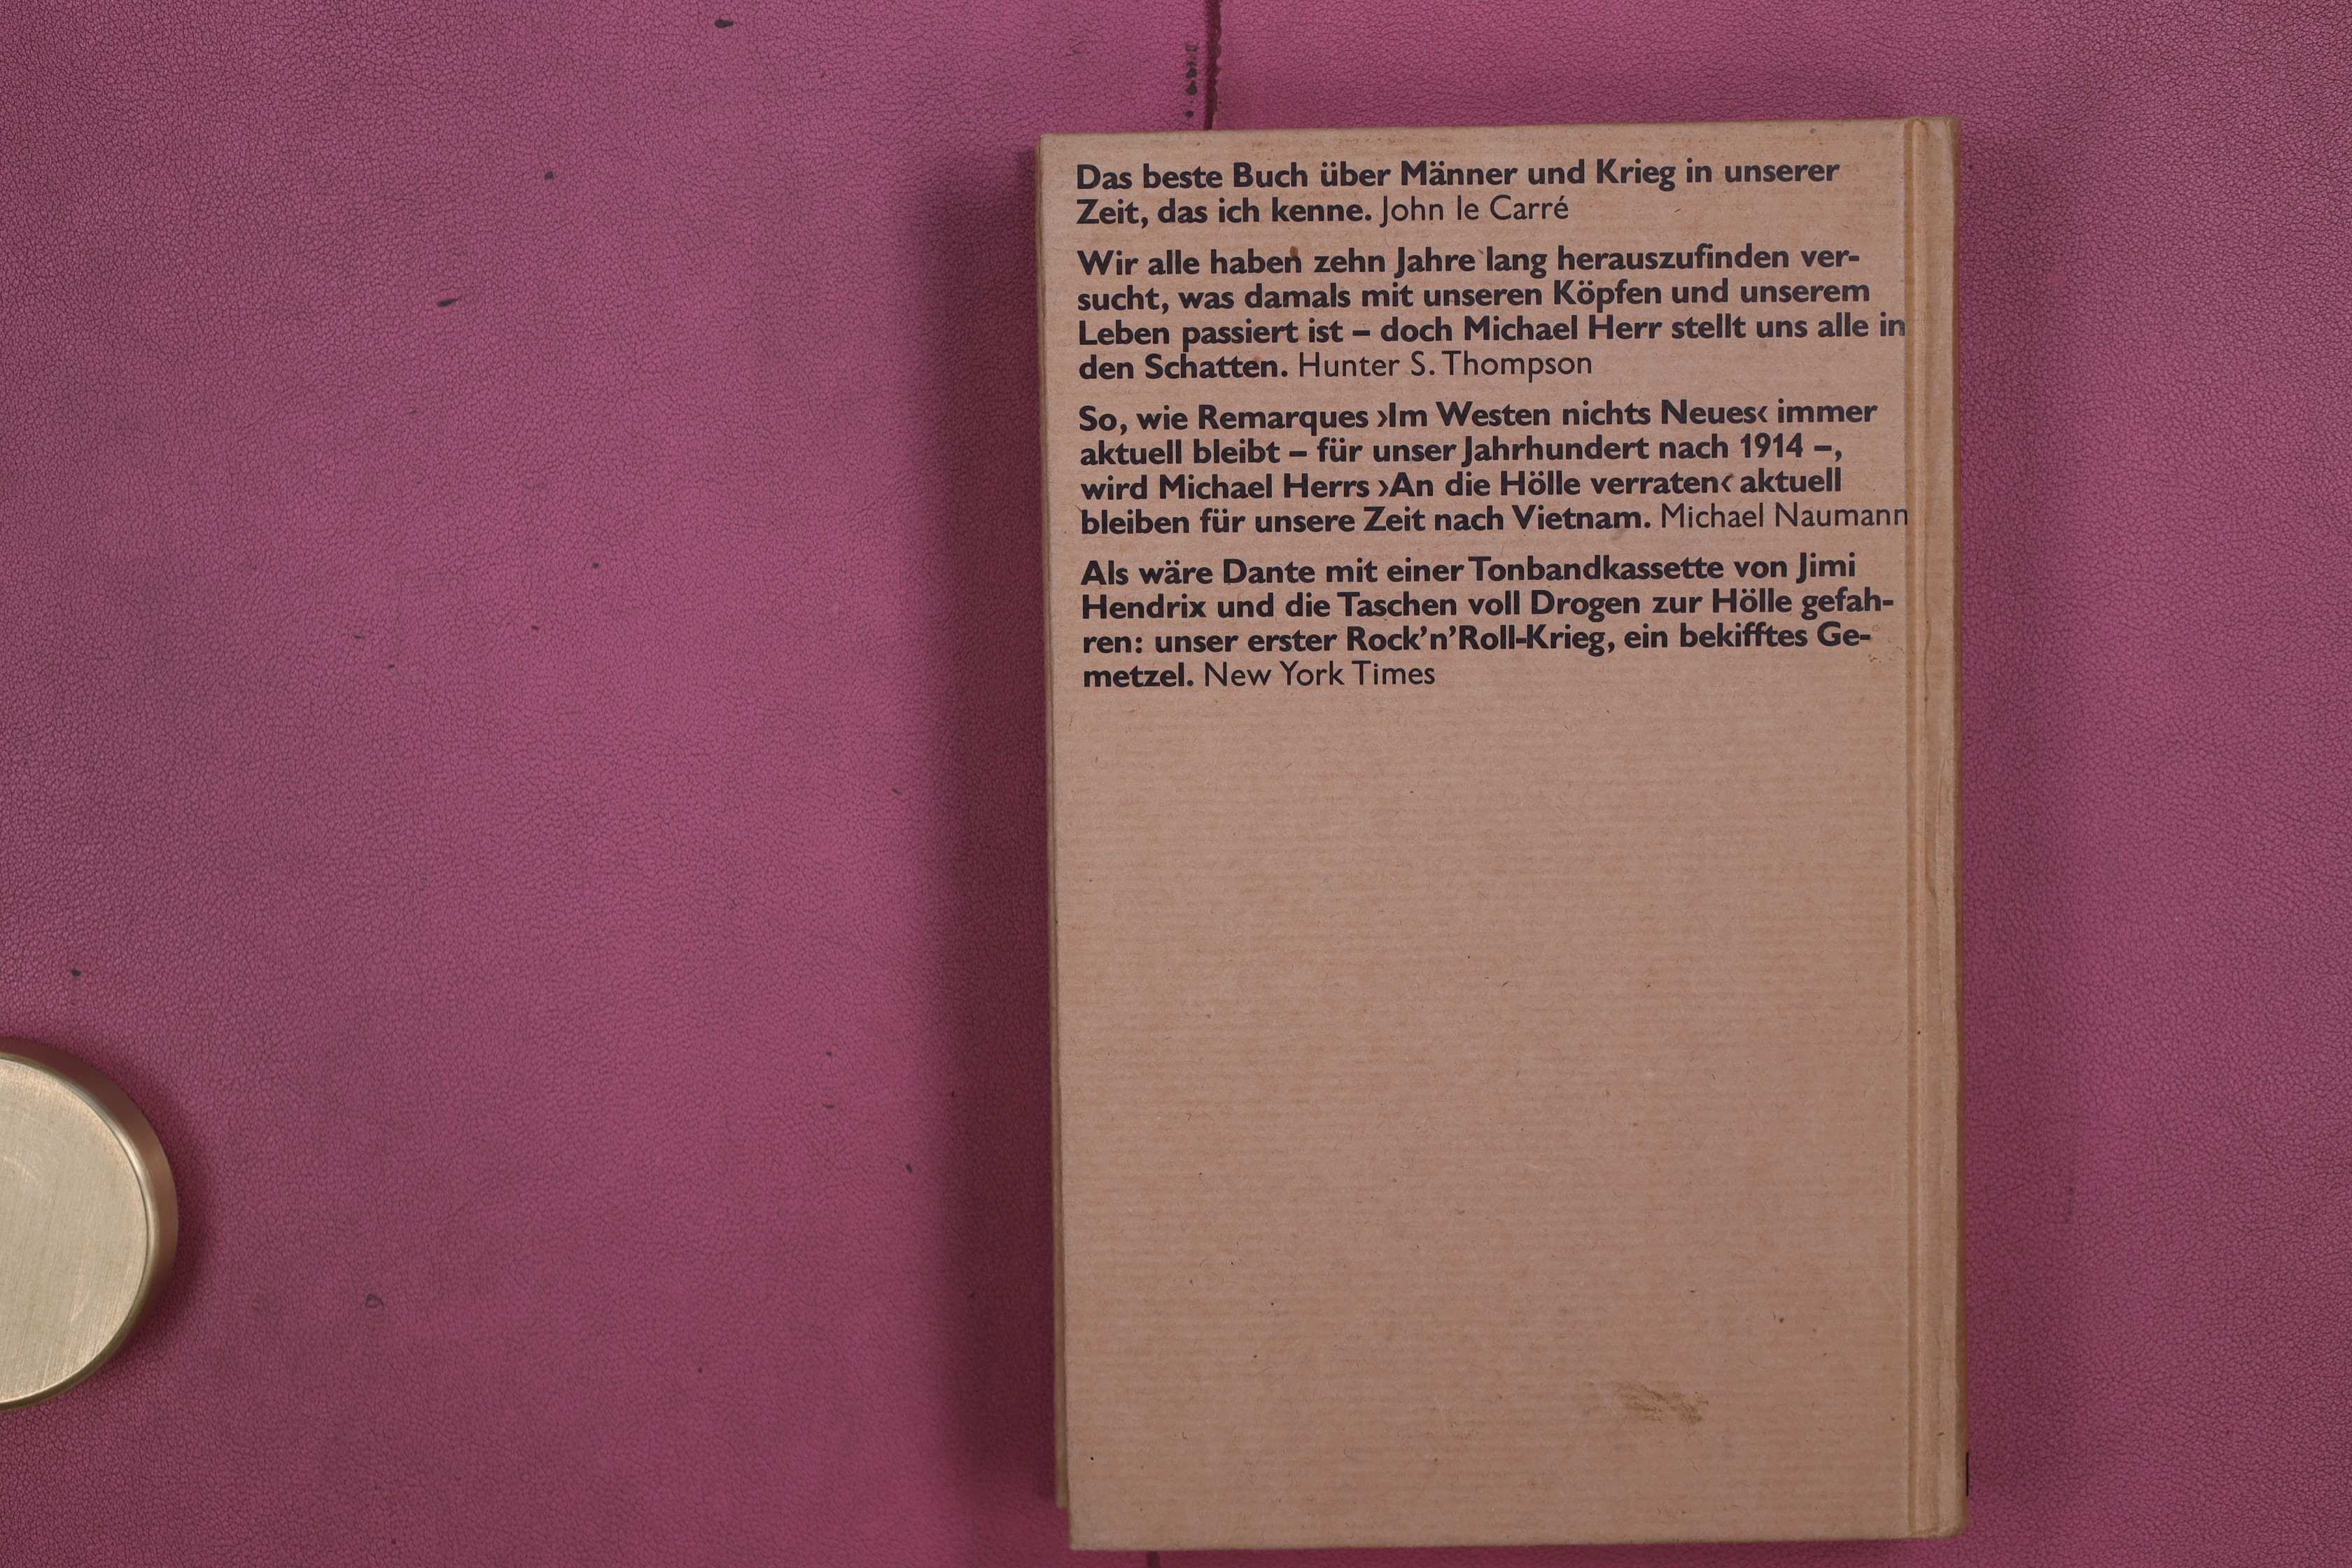 Das beste Buch über Männer und Krieg in unserer
Zeit, das ich kenne. John le Carré
Wir alle haben zehn Jahre lang herauszufinden ver-
sucht, was damals mit unseren Köpfen und unserem
Leben passiert ist – doch Michael Herr stellt uns alle in
den Schatten. Hunter S. Thompson
So, wie Remarques ›Im Westen nichts Neues‹ immer
aktuell bleibt – für unser Jahrhundert nach 1914 –,
wird Michael Herrs ›An die Hölle verraten‹ aktuell
bleiben für unsere Zeit nach Vietnam. Michael Naumann
Als wäre Dante mit einer Tonbandkassette von Jimi
Hendrix und die Taschen voll Drogen zur Hölle gefah-
ren: unser erster Rock’n’Roll-Krieg, ein bekifftes Ge-
metzel. New York Times